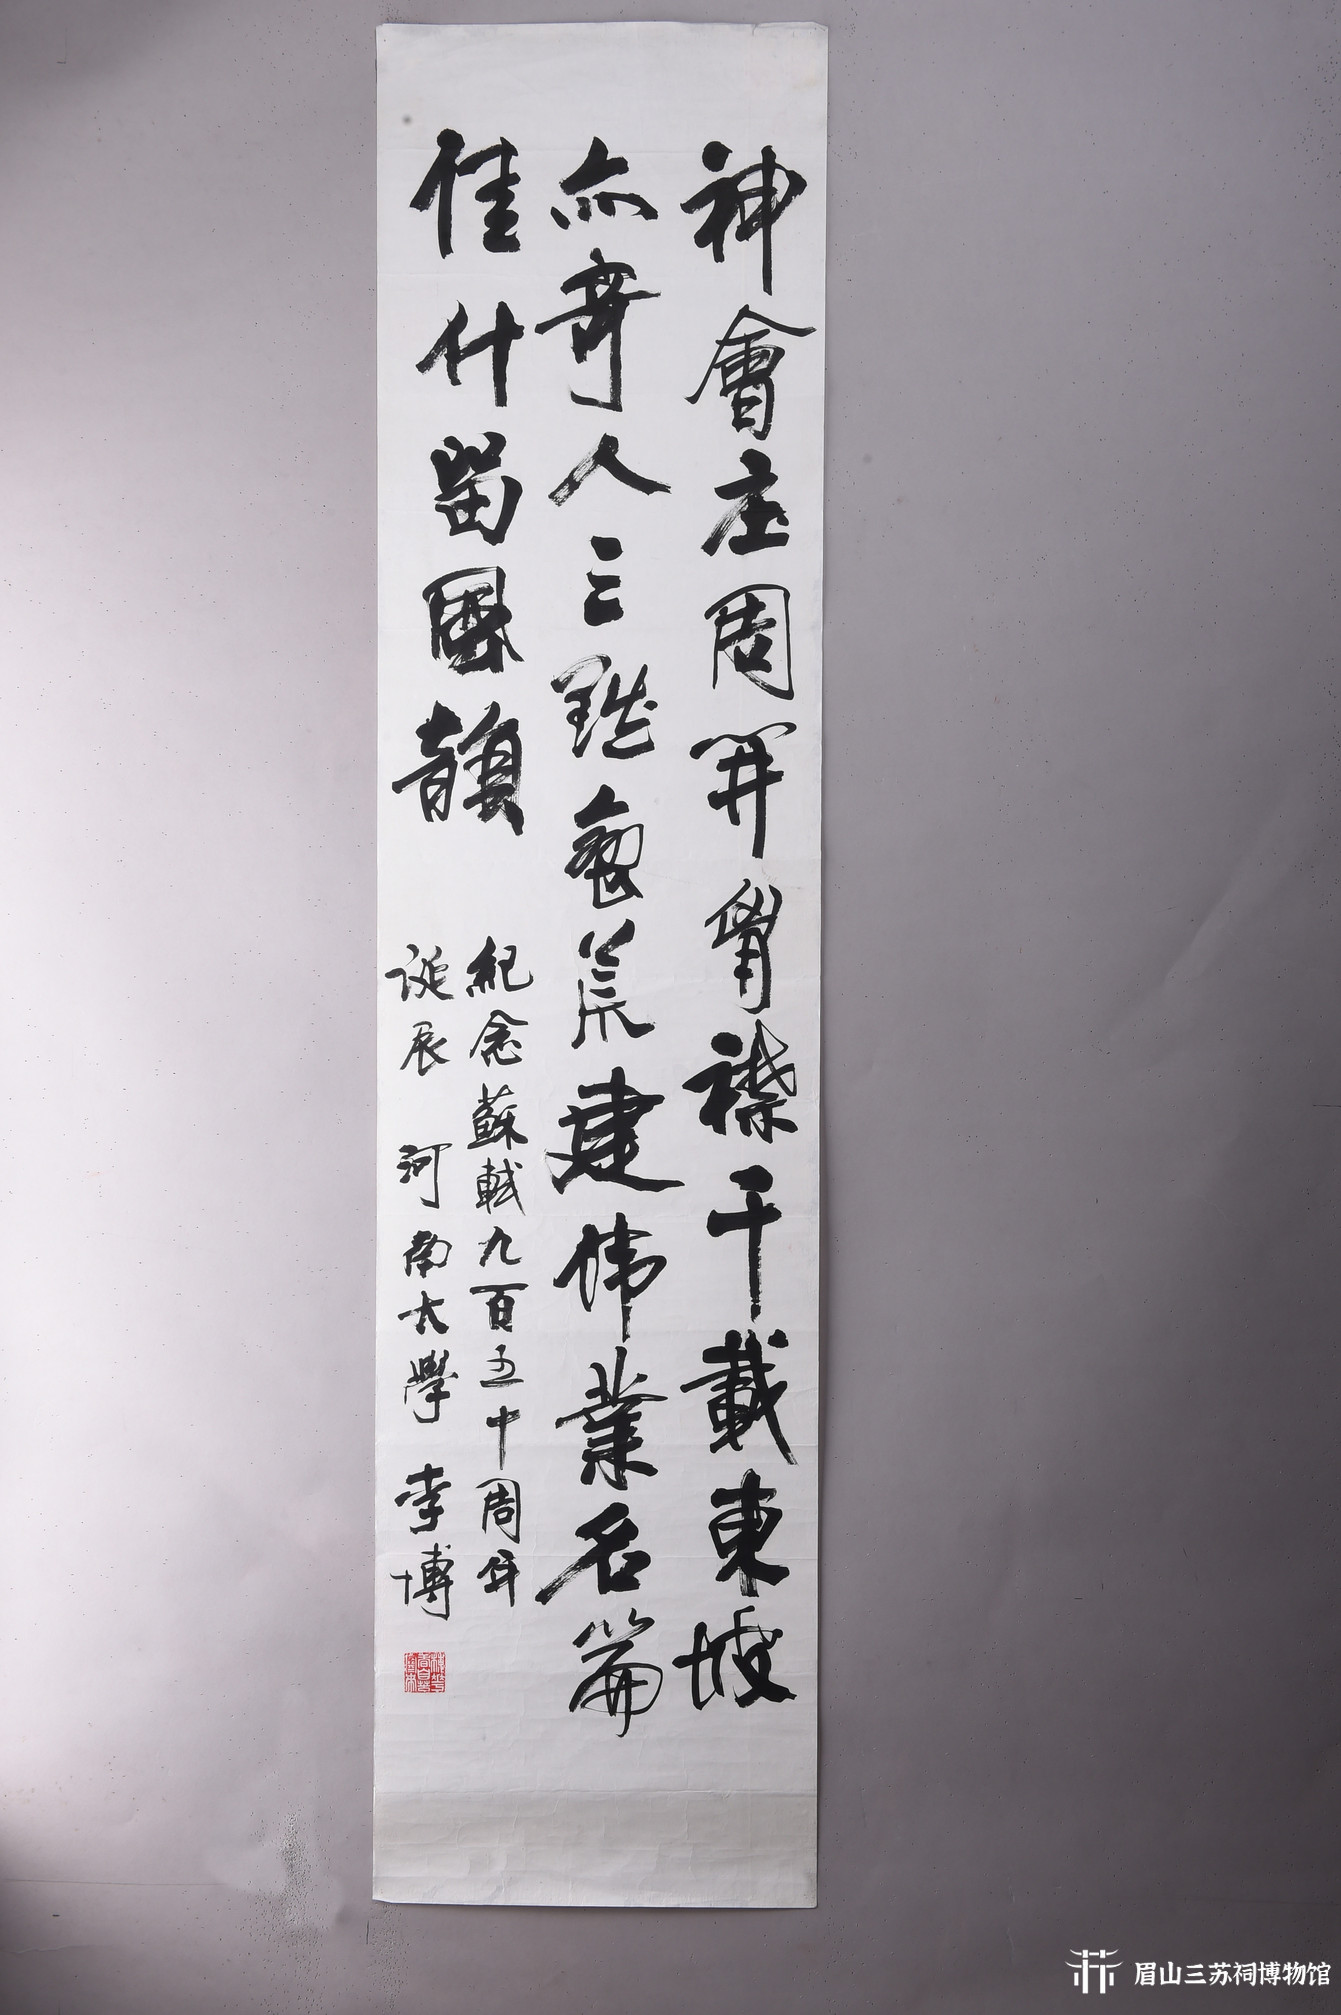 神會庄周開胷襟千載東坡
亦奇人三黜蛮荒建伟業名篇
佳什留國韻
紀念蘇軾九百五十周年
诞辰 河南大學 李博
眉山三苏祠博物馆